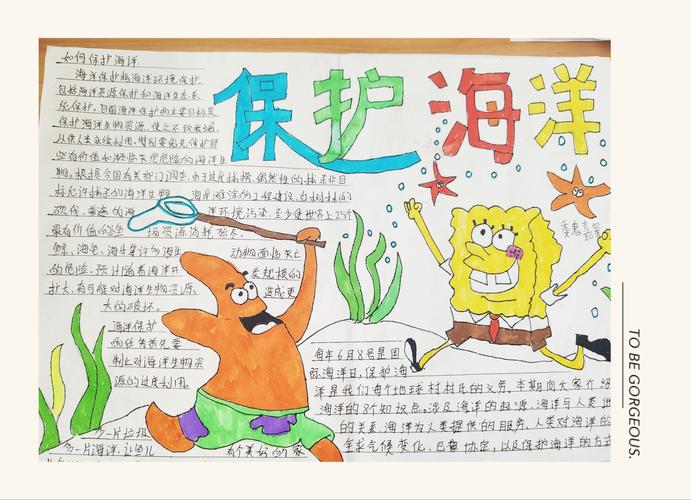 保护海洋
如何保护海洋
海洋保护指海洋环境保护,
包括海洋资源保护和海洋生态系
统保护。目前海洋保护的主要目标是
保护海洋生物资源,使之不致衰竭,
以供人类永续利用。特别要优先保护那
些有价值和濒临灭绝危险的海洋生
物。根据合国有关部门调查,由于过度捕捞、偶然性的捕杀非目
标允许捕杀的海洋生物、海岸滩涂的工程建设、红树林的
砍伐、普遍的海洋环境污染,至少使世界上25个
最有价值的渔场资源消耗殆尽,
鲸、海龟、海牛等许多海生动物面临灭亡
的危险。预计随着海洋开发规模的
扩大,有可能对海洋生物资源造成更
大的破坏。
海洋保护
的任务首先要
制止对海洋生物资
源的过度利用。
少一片垃圾
多一片海洋,让鱼儿
有个美好的家
每年6月8号是国
际海洋日,保护海
洋是我们每个地球村村民的义务,本期向大家介绍
海洋的8个知识点,涉及海洋的起源、海洋与人类
的关系、海洋为人类提供的服务、人类对海洋的
全球气候变化、巴黎协定,以及保护海洋的方式
TO BE GORGEOUS.